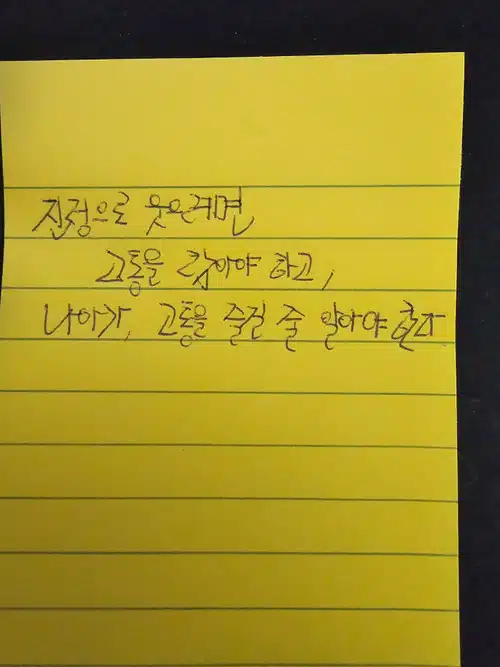 진정으로 웃으려면
고통을 참아야 하고,
나아가, 고통을 즐길 줄 알아야 한다